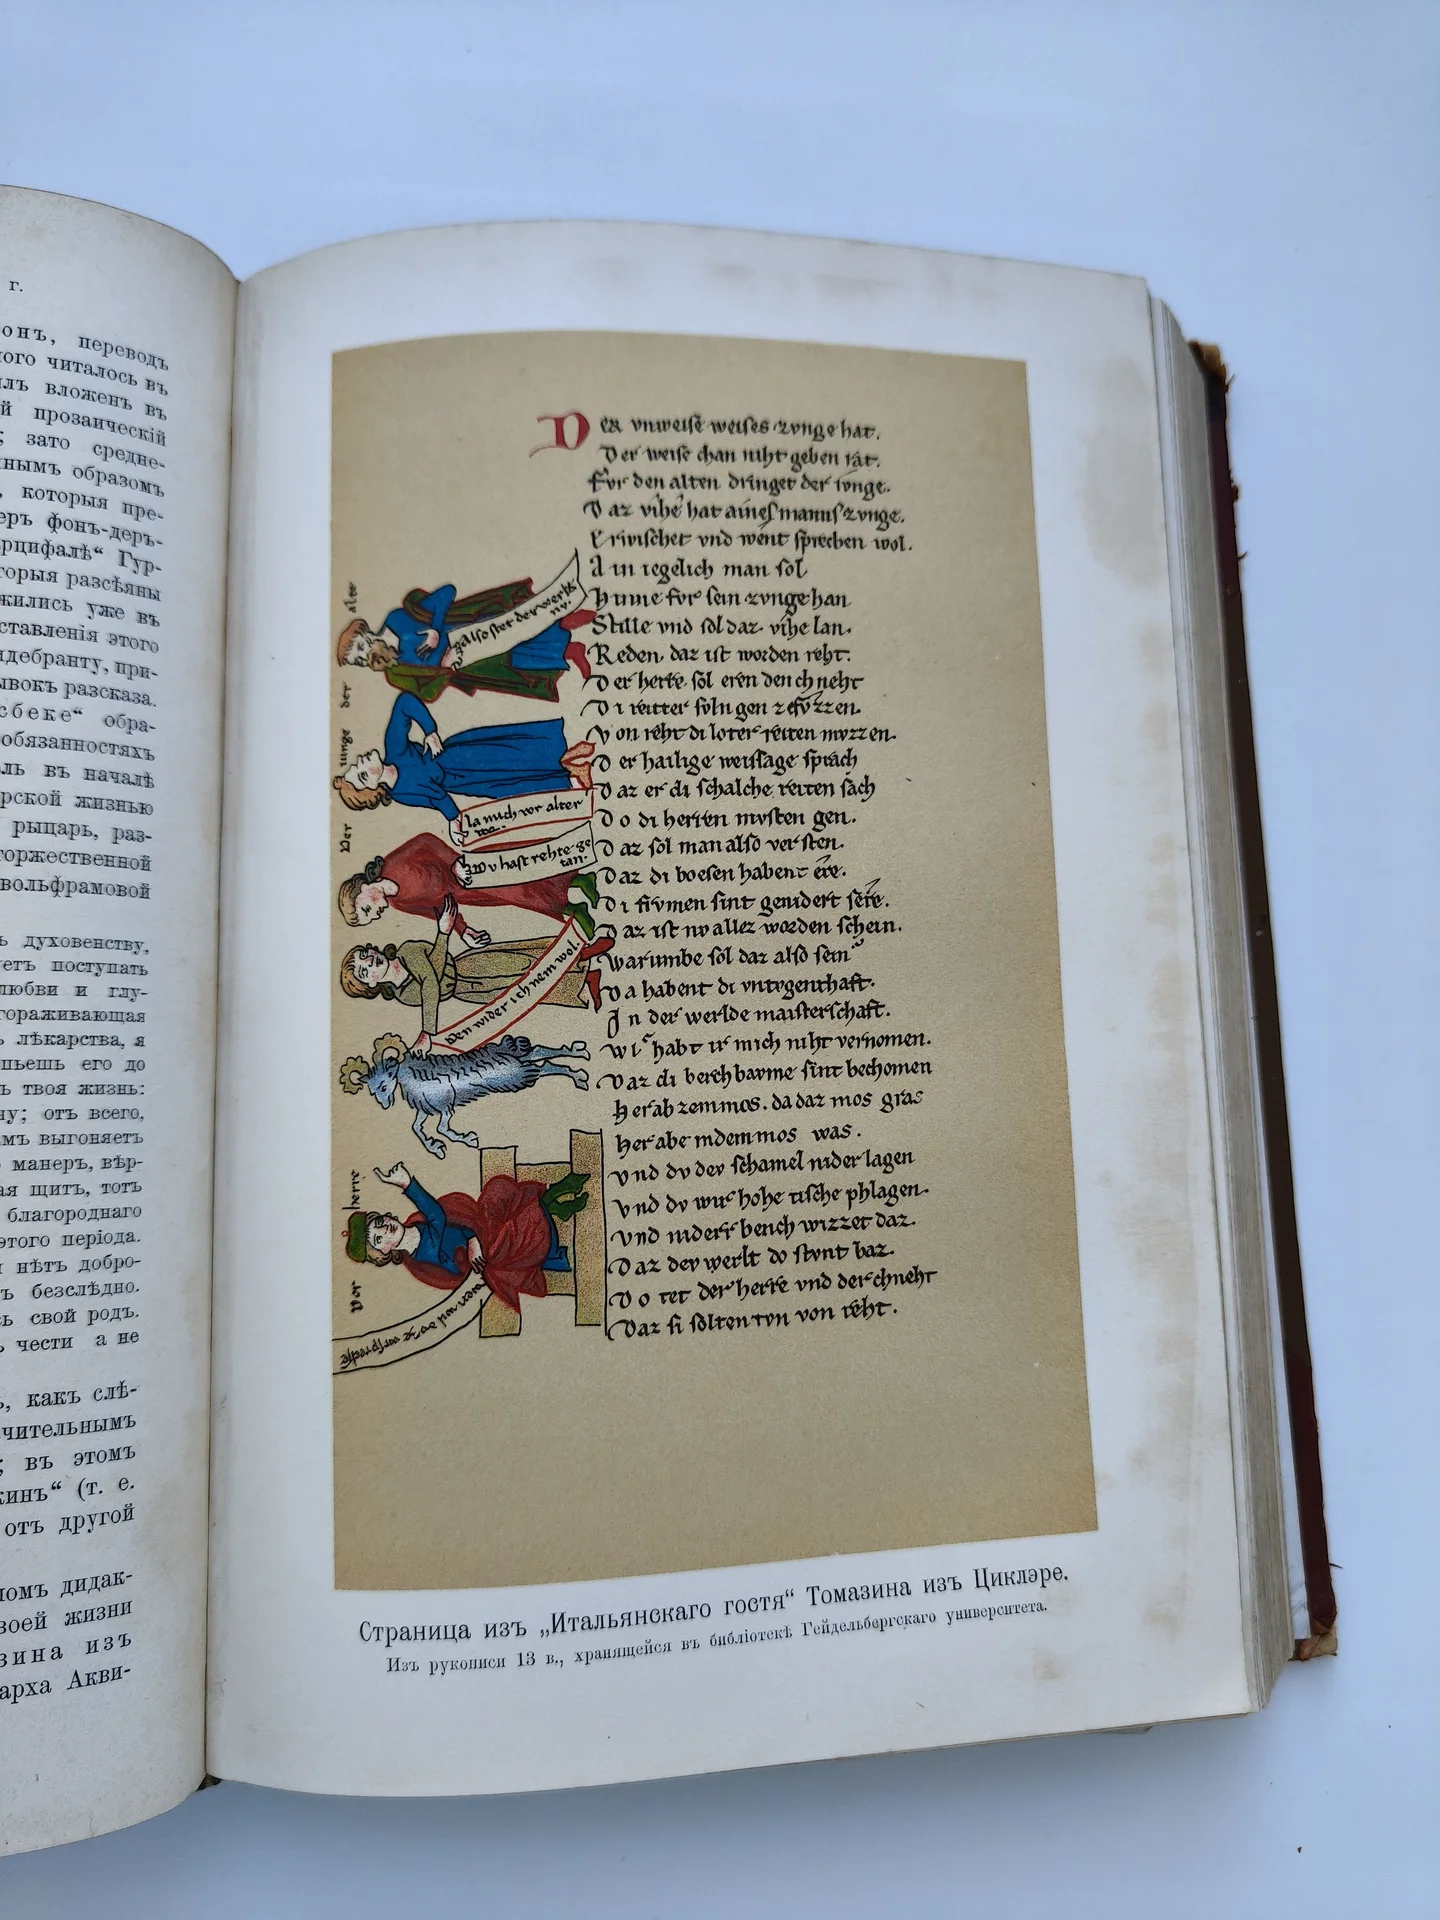 г.
онъ, переводъ
ного читалось въ
илъ вложенъ въ
й прозаическій
; зато средне-
ннымъ образомъ
, которыя пре-
еръ фонъ-деръ-
рцифалѣ“ Гур-
оторыя разсѣяны
жились уже въ
ставленія этого
льдебранту, при-
ывокъ разсказа.
сбеке“ обра-
обязанностяхъ
ль въ началѣ
рской жизнью
рыцарь, раз-
торжественной
вольфрамовой
ь духовенству,
уетъ поступать
любви и глу-
гораживающая
ъ лѣкарства, я
пьешь его до
ъ твоя жизнь:
ну; отъ всего,
амъ выгоняетъ
манеръ, вѣр-
ая щитъ, тотъ
благороднаго
этого періода.
и нѣтъ добро-
ъ безслѣдно.
сь свой родъ.
ь чести а не
ь, какъ слѣ-
чительнымъ
; въ этомъ
кинъ“ (т. е.
отъ другой
номъ дидак-
воей жизни
зина изъ
арха Акви-
Der vnweise weises zvnge hat.
Der weise chan niht geben rat.
Fvr den alten dringet der ivnge.
Daz vihe hat aines manns zvnge.
Erwischet vnd went sprechen wol.
Ain iegelich man sol
Hinne for sein zvnge han
Stille vnd sol daz vihe lan.
Reden daz ist worden reht.
Der herre sol eren den chneht
Di reitter soln gen ze fvzzen.
Von reht di loter reiten mvzzen.
Der hailige weissage sprach
Daz er di schalche reiten sach
Do di herren mvsten gen.
Daz sol man also versten.
Daz di boesen habent ere.
Di frvmen sint genidert sere.
Daz ist nv allez worden schein.
Warumbe sol daz also sein
Da habent di vntvgenthaft.
In der werlde maisterschaft.
Wi habt ir mich niht vernomen.
Daz di berch bavme sint bechomen
Herab zem mos. da daz mos gras
Her abe in dem mos was.
Vnd dv dev schamel nider lagen
Vnd dv wir hohe tische phlagen.
Vnd niderr bench wizzet daz.
Daz dev werlt do stvnt baz.
Do tet der herre vnd der chneht
Daz si solten tvn von reht.
Der ivnge der alte
Also stet der werlt
nv.
la mich vor alter
Dv hast rehte ge
tan.
Den wider ich nem wol.
Der herre
Страница изъ „Итальянскаго гостя“ Томазина изъ Циклэре.
Изъ рукописи 13 в., хранящейся въ библіотекѣ Гейдельбергскаго университета.